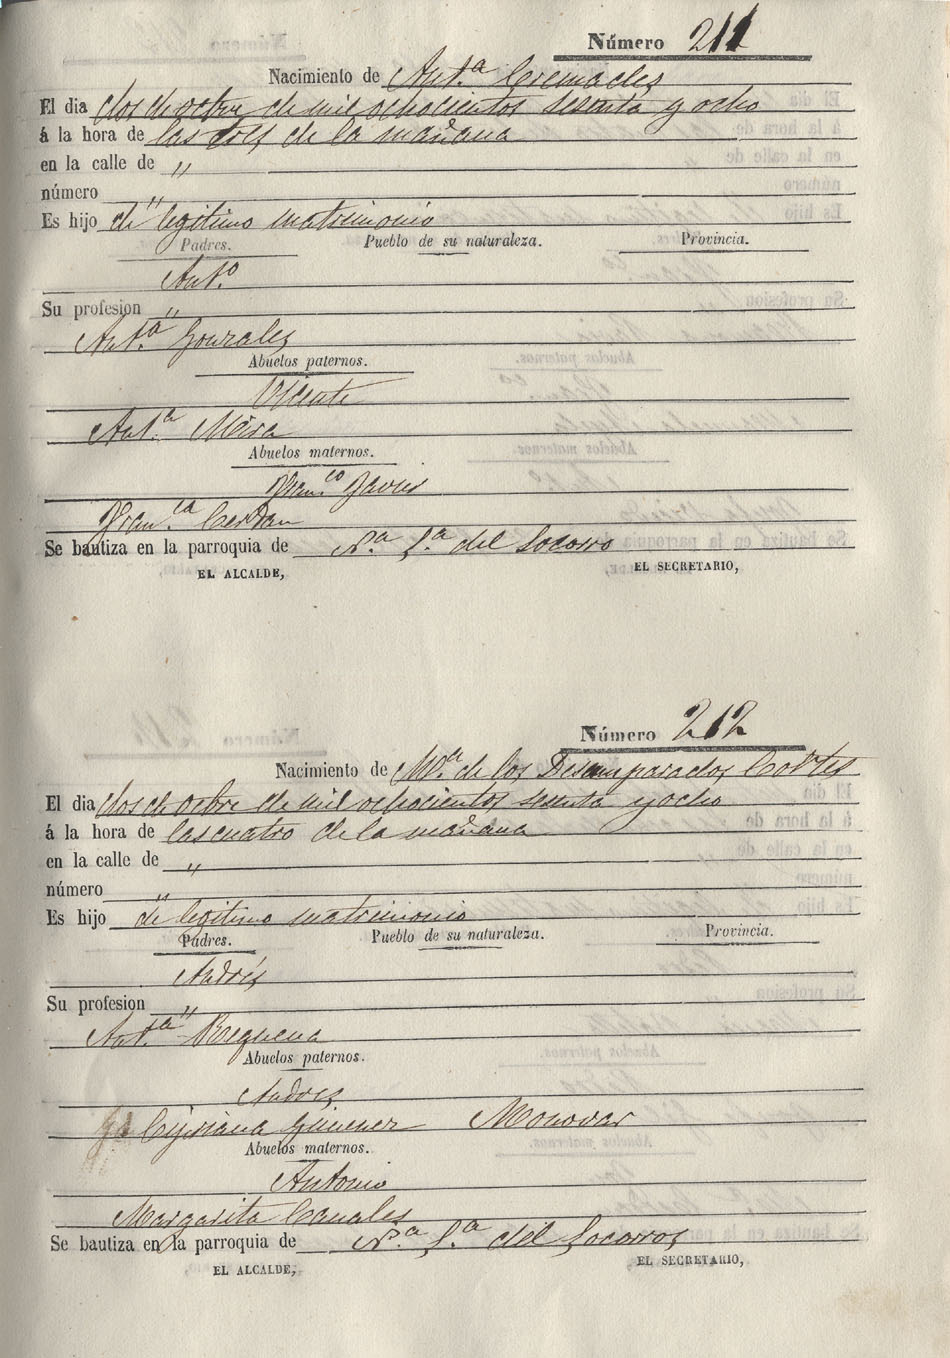 Número 211
Nacimiento de Ant.ª Cremades
El dia dos de octbre de mil ochocientos sesenta y ocho
á la hora de las tres de la mañana
en la calle de "
número "
Es hijo de legitimo matrimonio
Padres. Pueblo de su naturaleza. Provincia.
Ant.º
Su profesion "
Ant.ª Gonzales
Abuelos paternos.
Vicente
Ant.ª Mira
Abuelos maternos.
Fran.co Javier
Fran.ca Cerdan
Se bautiza en la parroquia de N.ª S.ª del Socorro
EL ALCALDE, EL SECRETARIO,
Número 212
Nacimiento de M.ª de los Desamparados Cortes
El dia dos de octbre de mil ochocientos sesenta y ocho
á la hora de las cuatro de la mañana
en la calle de "
número "
Es hijo de legitimo matrimonio
Padres. Pueblo de su naturaleza. Provincia.
Andrés
Su profesion "
Ant.ª Requena
Abuelos paternos.
Andres
Cipriana Gimener Monovar
Abuelos maternos.
Antonio
Margarita Canales
Se bautiza en la parroquia de N.ª S.ª del Socorros
EL ALCALDE, EL SECRETARIO,